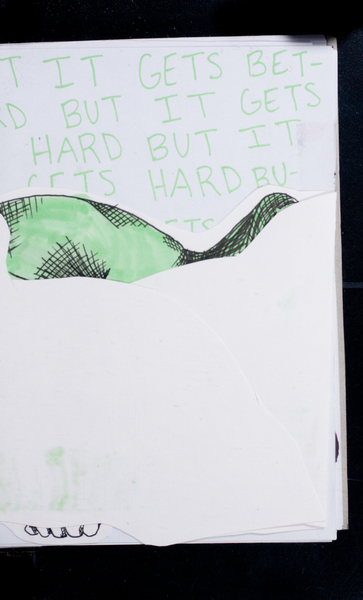 T IT GETS BET-
RD BUT IT GETS
HARD BUT IT
GETS HARD BU-
ETS